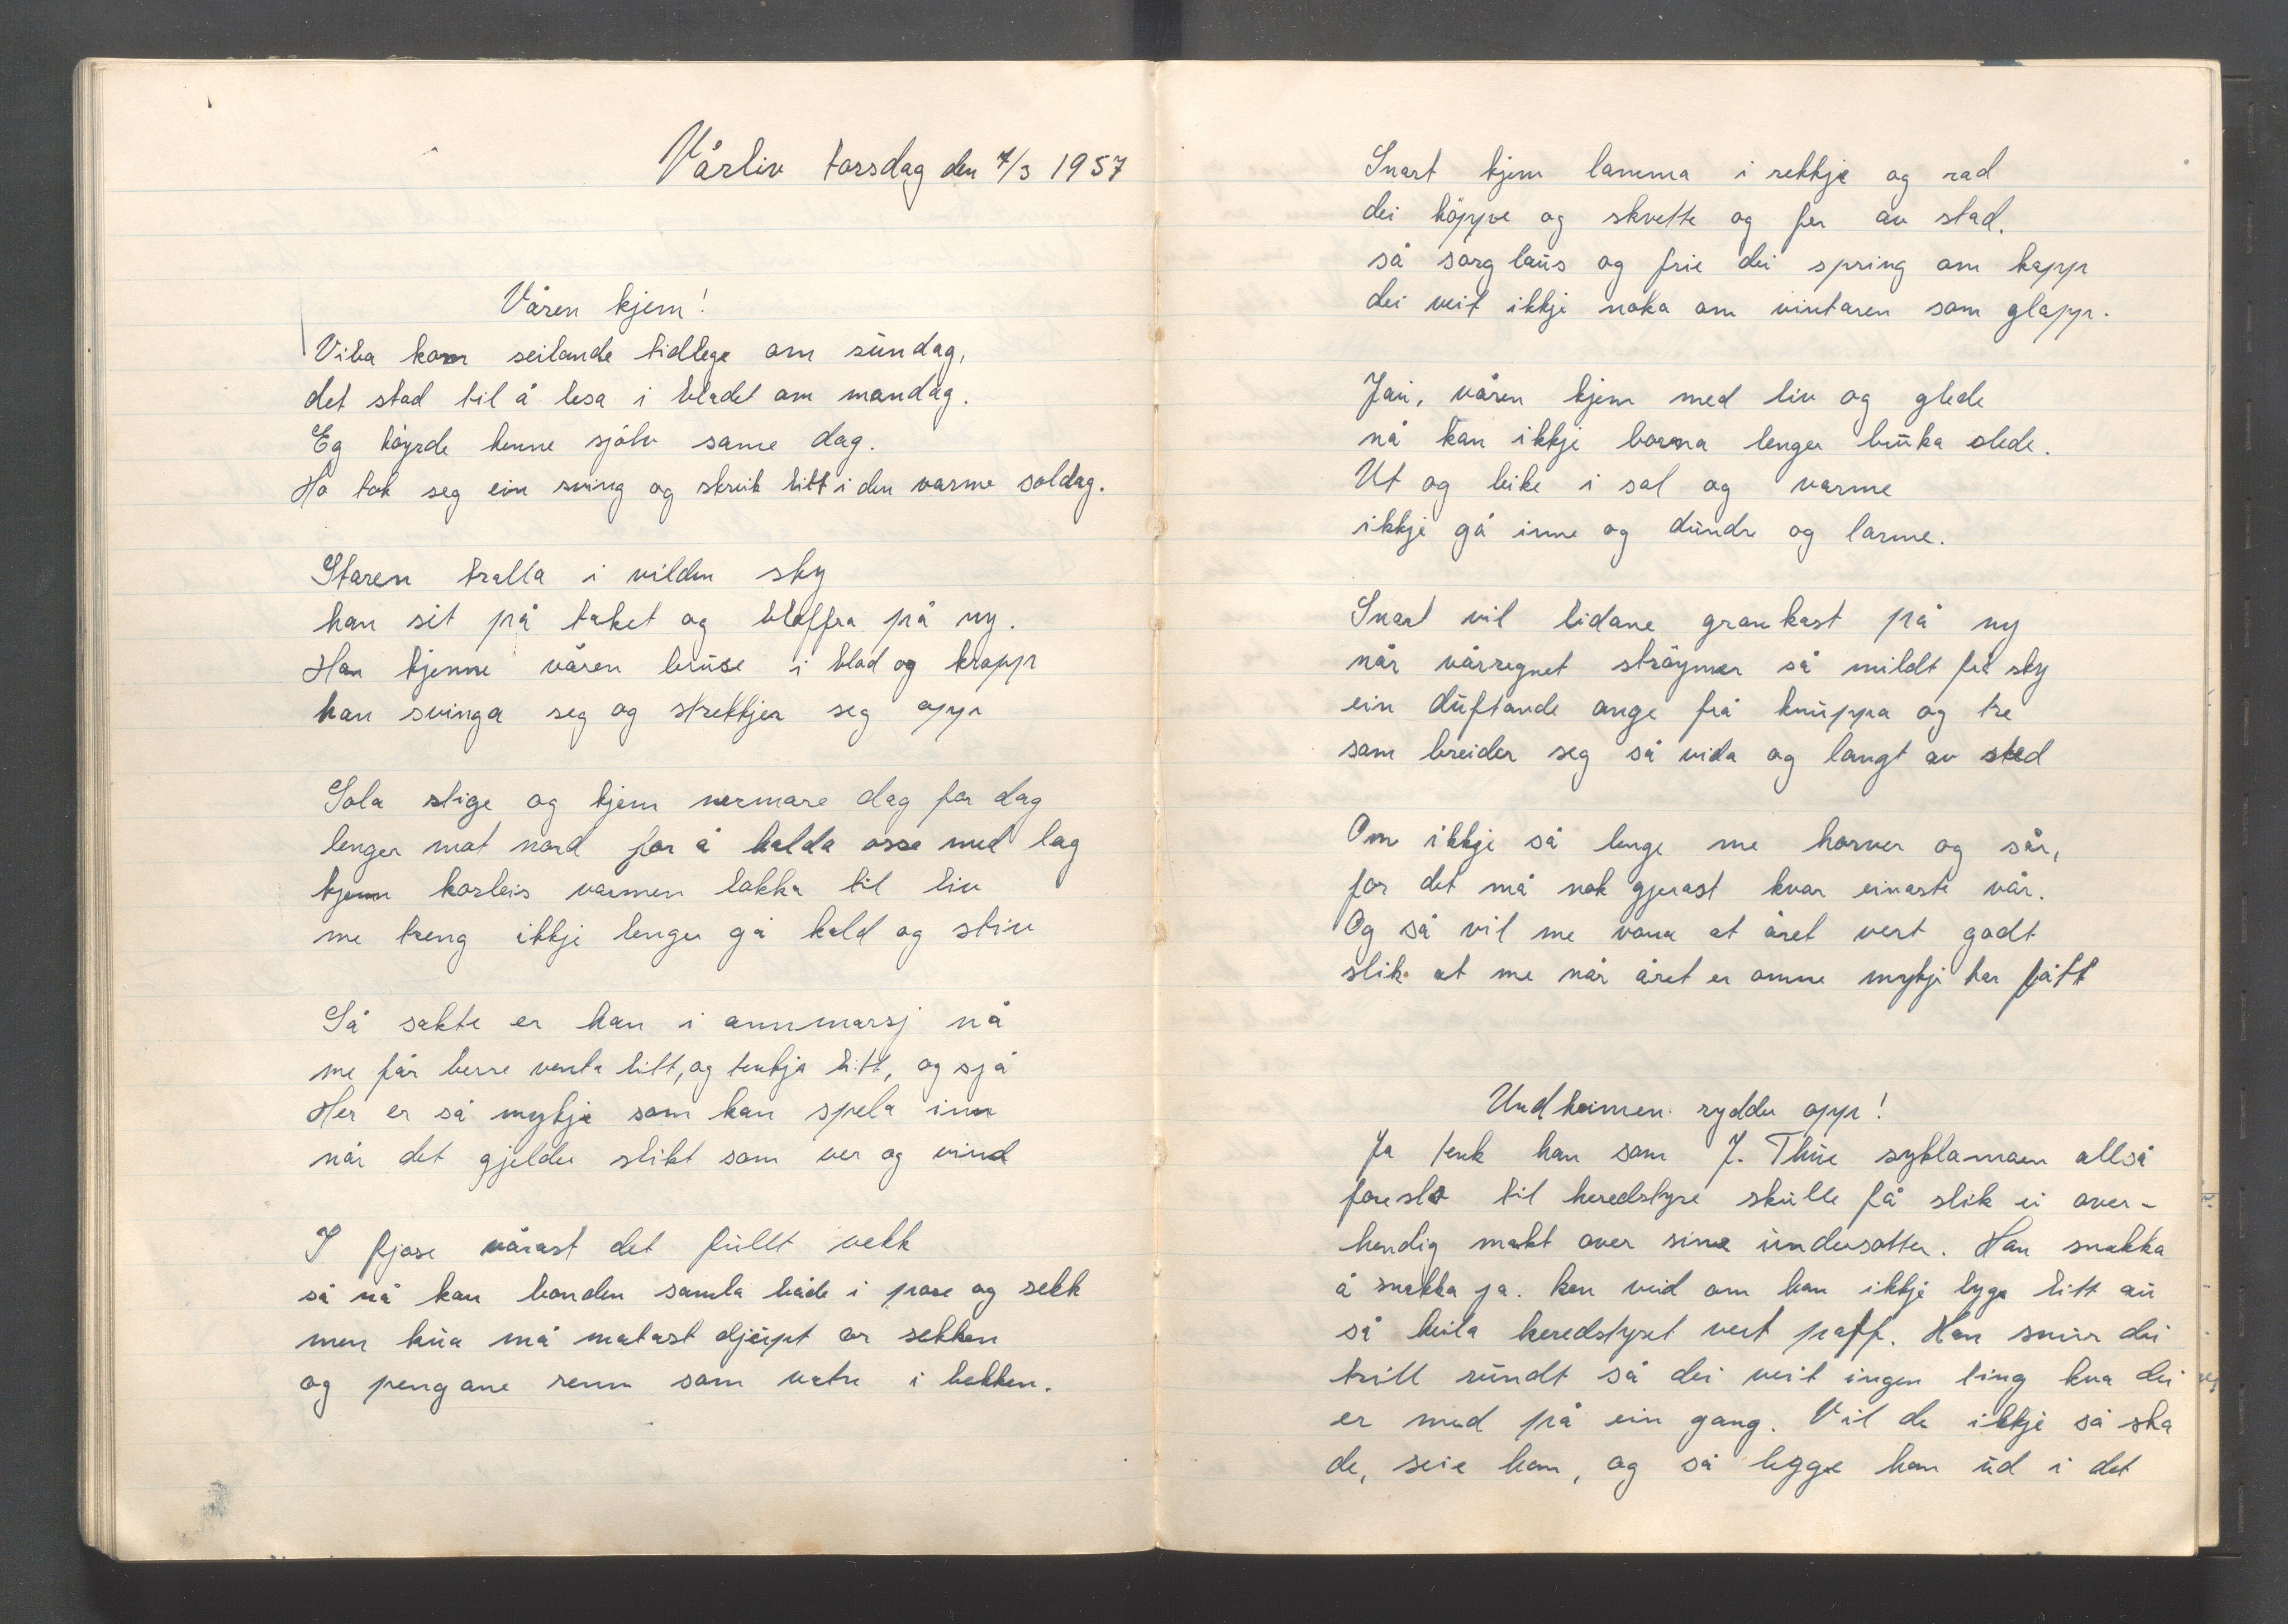 Vårliv torsdag den 7/3 1957
Våren kjem!
Viba kom seilande tidlege om sundag,
det stod til å lesa i bladet om mandag.
Eg höyrde henne sjölv same dag.
Ho tok seg ein sving og skreik litt i den varme soldag.
Staren tralla i vilden sky
han sit på taket og bloffra på ny.
Han kjenne våren bruse i blod og kropp
han svinga seg og strekkjer seg opp
Sola stige og kjem nermare dag for dag
lenger mot nord for å halda osse med lag
kjenn korleis varmen lokka til liv
me treng ikkje lenger gå kald og stiv
Så sakte er han i annmarsj nå
me får berre venta litt, og tenkja litt, og sjå
Her er så mykje som kan spela inn
når det gjelder slikt som ver og vind
I fjøse vårast det fullt vekk
så nå kan bonden samla både i pose og sekk
men kua må matast djupt or sekken
og pengane renn som vatn i bekken.
Snart kjem lamma i rekkje og rad
dei höppe og skvette og fer av stad.
så sorglaus og frie dei spring om kapp
dei veit ikkje noka om vintaren som glapp.
Jau, våren kjem med liv og glede
nå kan ikkje borna lenger bruka slede.
Ut og leike i sol og varme
ikkje gå inne og dundre og larme.
Snart vil lidane grønkast på ny
når vårregnet ströymer så mildt frå sky
ein duftande ange frå knuppa og tre
som breider seg så vida og langt av sted
Om ikkje så lenge me horver og sår,
for det må nok gjerast kvar einaste vår.
Og så vil me vona at året vert godt
slik at me når året er omne mykje har fått
Undheimen ryddu opp!
Ja tenk han som J. Thue syklamaen allså
foreslo til heredstyre skulle få slik ei over-
hendig makt over sine undersotter. Han snakka
å snakka ja. ken veid om han ikkje lyge litt au
så heila heredstyret vert paff. Han snurr dei
trill rundt så dei veit ingen ting kva dei
er med på ein gang. Vil de ikkje så ska
de, seie han, og så legge han ud i det